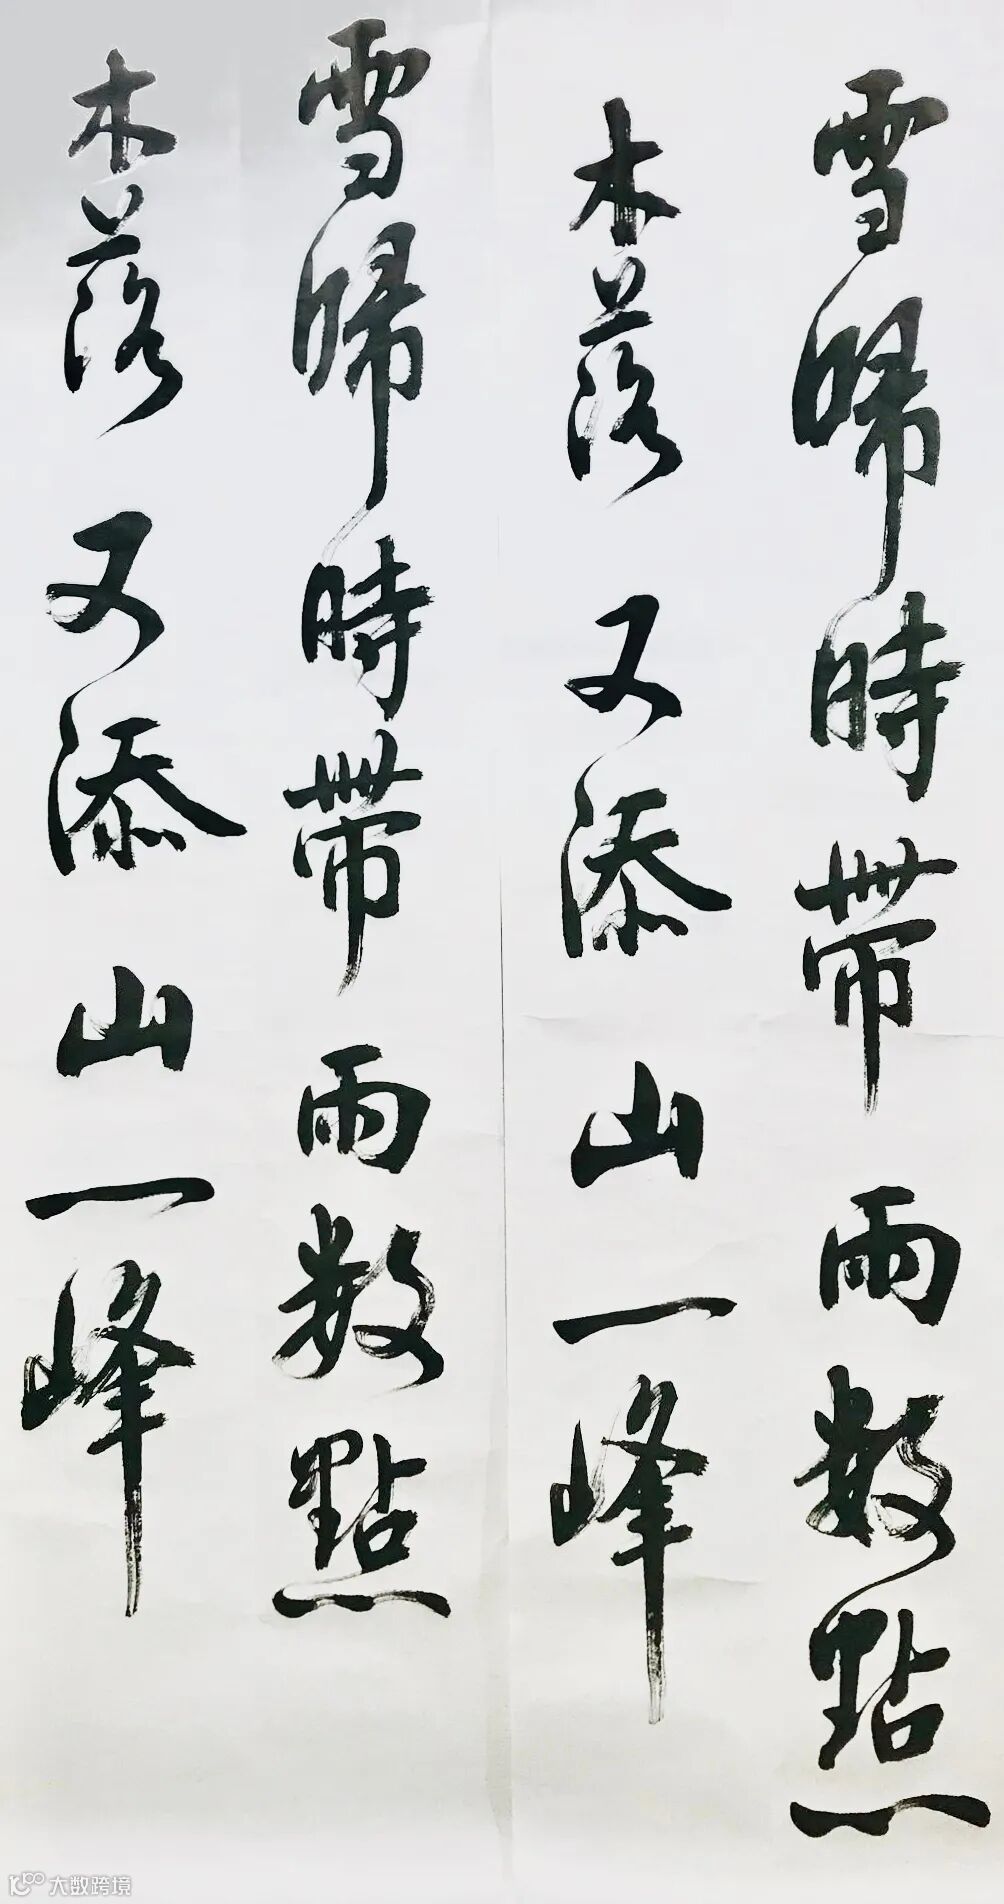 雪歸時帶雨數點
木落又添山一峰
雪歸時帶雨數點
木落又添山一峰
大数跨境